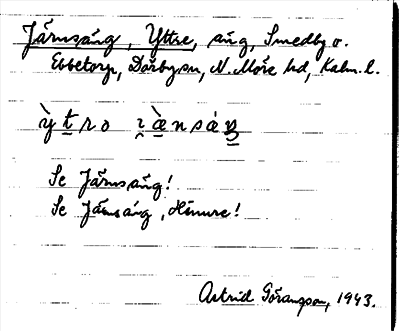 Järnsäng, Yttre, äng, Smedby o.
Ebbetorp, Dörbysn, N. Möre hd, Kalm. l.
Se Järnsäng!
Se Järnsäng, Hinnre!
Astrid Göransson, 1943.